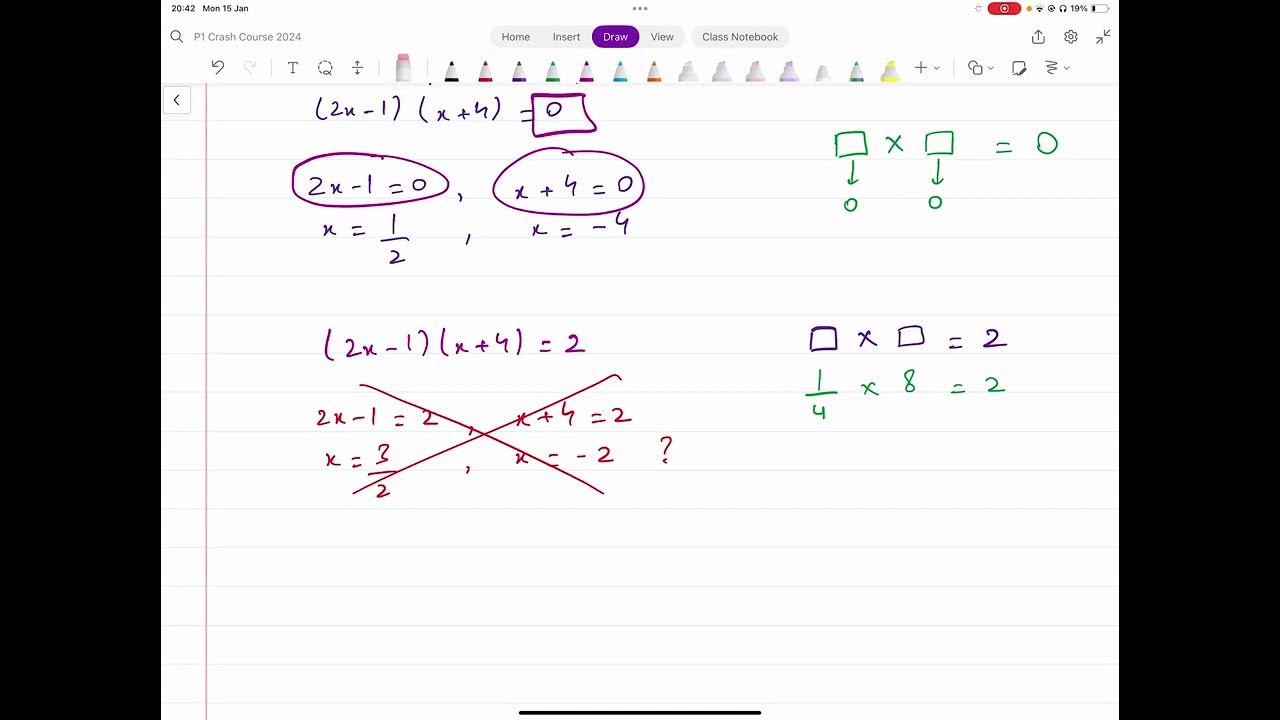 20:42 Mon 15 Jan
19%
P1 Crash Course 2024
Home Insert Draw View Class Notebook
(2x-1) (x+4) = 0
□ x □ = 0
0 0
2x-1 = 0 , x + 4 = 0
x = 1/2 , x = -4
(2x-1)(x+4) = 2
□ x □ = 2
1/4 x 8 = 2
2x-1 = 2 , x+4 = 2
x = 3/2 , x = -2 ?